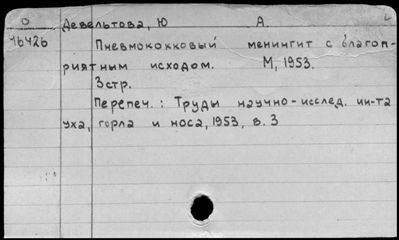 О Девельтова, Ю А.
16426 Пневмококковый менингит с благоп-
риятным исходом. М, 1953.
3стр.
Перепеч.: Труды научно-исслед. ин-та
уха, горла и носа, 1953, в. 3